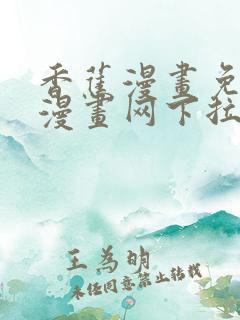 香蕉漫畫免
漫畫网下拉
王为明
未经同意禁止转载